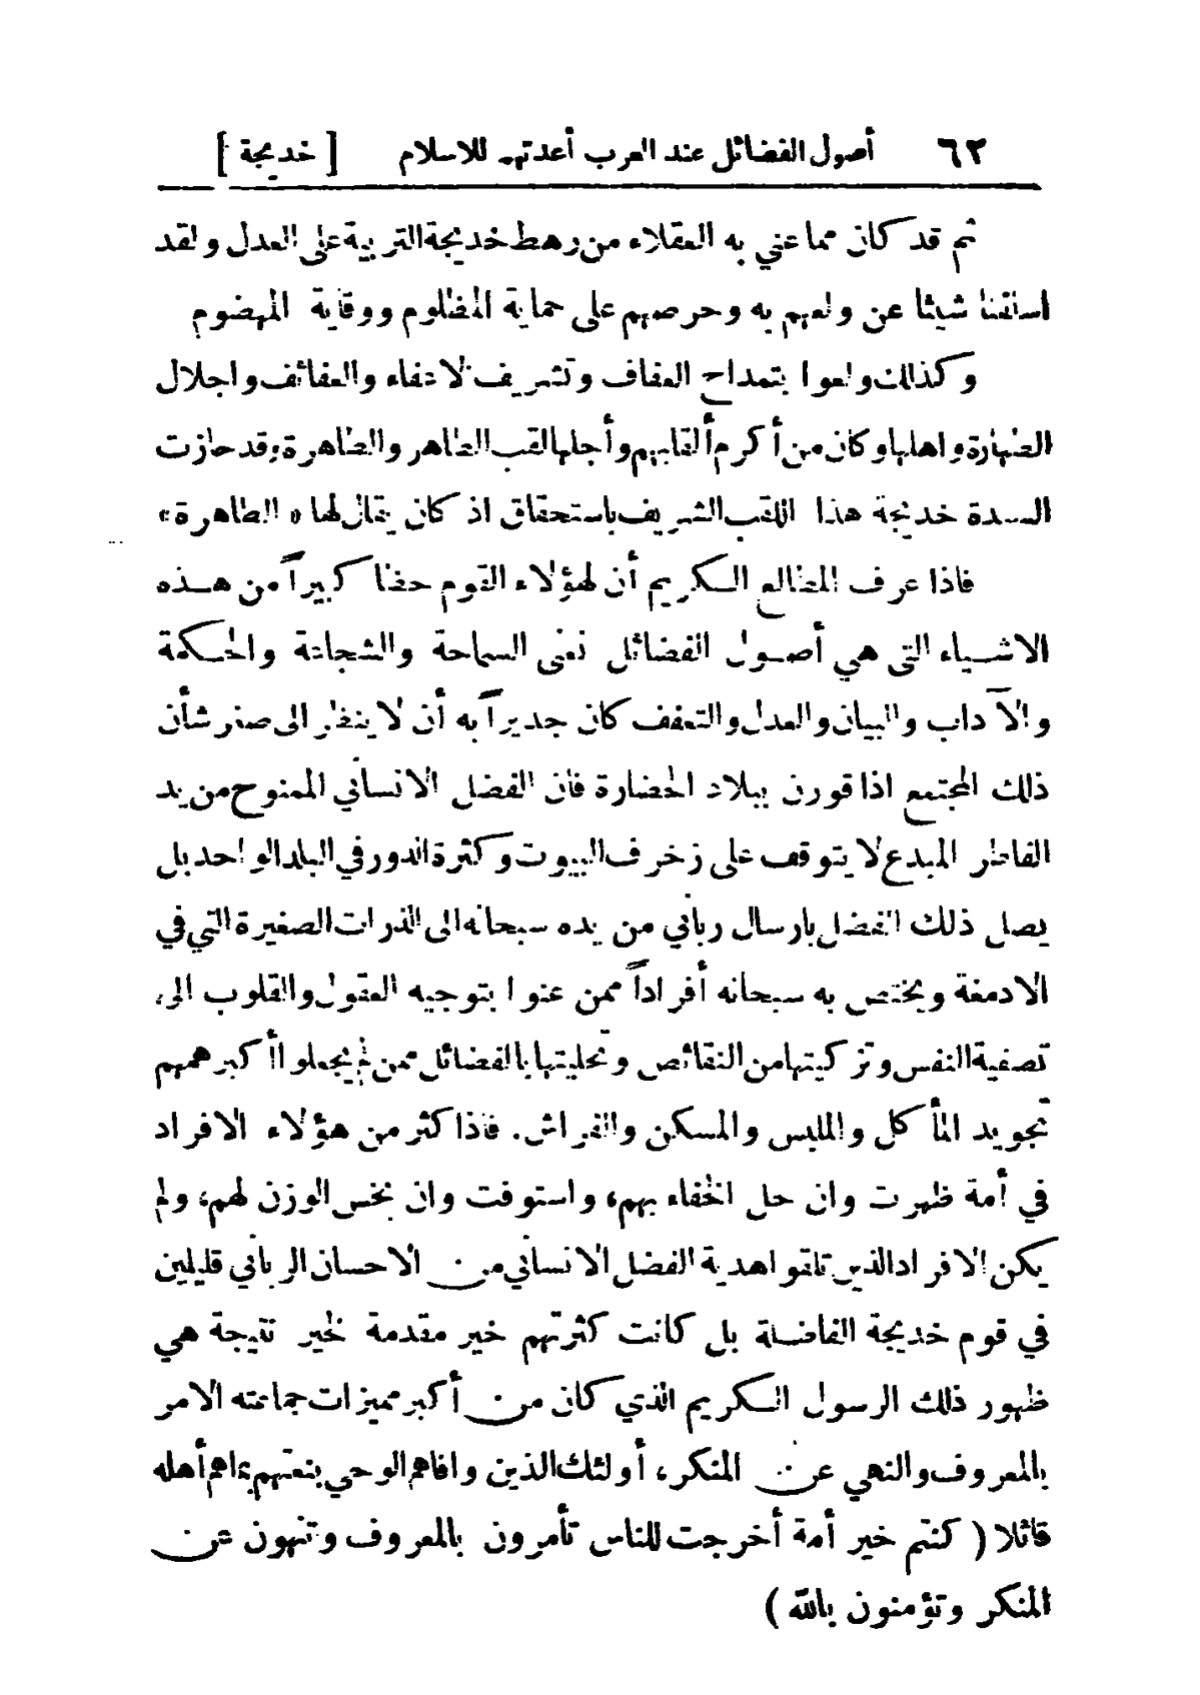 ٦٢ أصول الفضائل عند العرب أعدتهم للاسلام [ خديجة ]
ثم قد كان مما عني به العقلاء من رهط خديجة التربية على العدل ولقد
اسلفنا شيئا عن ولعهم به وحرصهم على حماية المظلوم ووقاية المهضوم
وكذلك ولعوا بتمداح العفاف وتشريف الاعفاء والعفائف واجلال
الطهارة واهلها وكان من أكرم ألقابهم وأجلها لقب الطاهر والطاهرة وقد حازت
السيدة خديجة هذا اللقب الشريف باستحقاق اذ كان يقال لها « الطاهرة »
فاذا عرف المطالع الكريم أن لهؤلاء القوم حظا كبيراً من هذه
الاشياء التي هي أصول الفضائل نعني السماحة والشجاعة والحكمة
والآداب والبيان والعدل والتعفف كان جديراً به أن لا ينظر الى صغر شأن
ذلك المجتمع اذا قورن ببلاد الحضارة فان الفضل الانساني الممنوح من يد
الفاطر المبدع لا يتوقف على زخرف البيوت وكثرة الدور في البلد الواحد بل
يصل ذلك الفضل بارسال رباني من يده سبحانه الى الذرات الصغيرة التي في
الادمغة ويختص به سبحانه أفراداً ممن عنوا بتوجيه العقول والقلوب الى
تصفية النفس وتزكيتها من النقائص وتحليتها بالفضائل ممن لم يجعلوا أكبر همهم
تجويد المأكل والملبس والمسكن والفراش. فاذا كثر من هؤلاء الافراد
في أمة ظهرت وان حل الخفاء بهم، واستوفت وان بخس الوزن لهم، ولم
يكن الافراد الذين تلقوا هدية الفضل الانساني من الاحسان الرباني قليلين
في قوم خديجة الفاضلة بل كانت كثرتهم خير مقدمة لخير نتيجة هي
ظهور ذلك الرسول الكريم الذي كان من أكبر مميزات جماعته الامر
بالمعروف والنهي عن المنكر، أولئك الذين وافاهم الوحي بنعتهم بما هم أهله
قائلا ( كنتم خير أمة أخرجت للناس تأمرون بالمعروف وتنهون عن
المنكر وتؤمنون بالله )